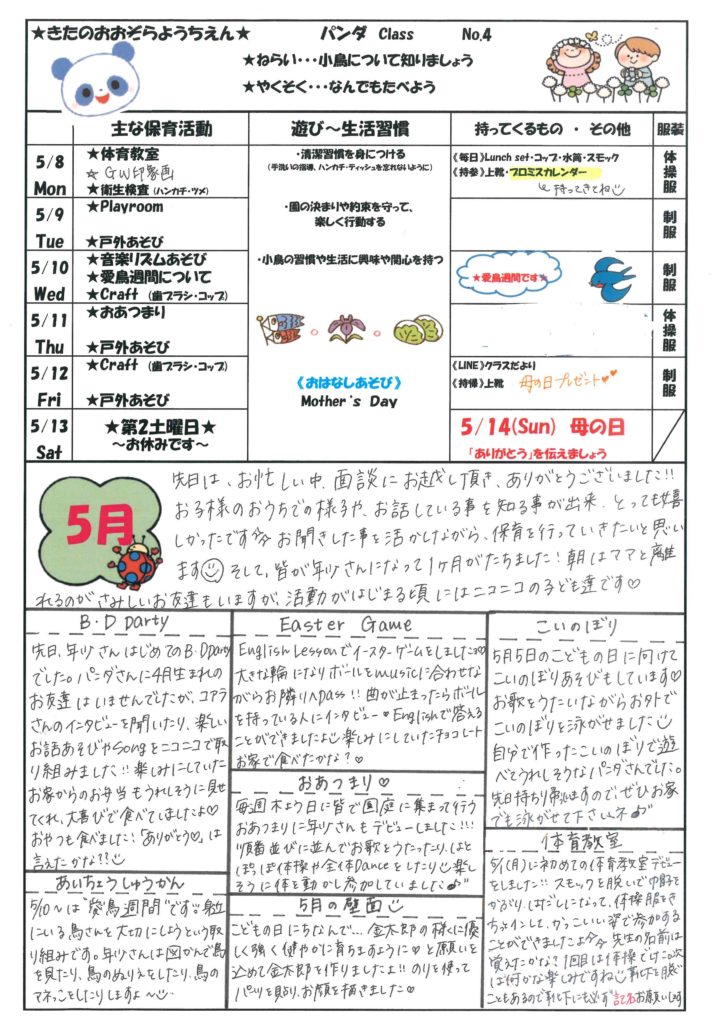 ★きたのおおぞらようちえん★ パンダ Class No.4
★ねらい・・・小鳥について知りましょう
★やくそく・・・なんでもたべよう
主な保育活動 遊び～生活習慣 持ってくるもの ・ その他 服装
5/8 Mon
★体育教室
☆ GW印象画
★衛生検査 (ハンカチ・ツメ)
・清潔習慣を身につける
(手洗いの指導、ハンカチ・ティッシュを忘れないように)
《毎日》Lunch set・コップ・水筒・スモック
《持参》上靴・プロミスカレンダー
↳ 持ってきてね
体操服
5/9 Tue
★Playroom
★戸外あそび
・園の決まりや約束を守って、
楽しく行動する
制服
5/10 Wed
★音楽リズムあそび
★愛鳥週間について
★Craft (歯ブラシ・コップ)
・小鳥の習慣や生活に興味や関心を持つ
★愛鳥週間です★
制服
5/11 Thu
★おあつまり
★戸外あそび
体操服
5/12 Fri
★Craft (歯ブラシ・コップ)
★戸外あそび
《おはなしあそび》
Mother's Day
《LINE》クラスだより
《持帰》上靴 母の日プレゼント♥♥
制服
5/13 Sat
★第2土曜日★
～お休みです～
5/14(Sun) 母の日
「ありがとう」を伝えましょう
5月
先日は、お忙しい中、面談にお越し頂き、ありがとうございました!!
お子様のおうちでの様子や、お話している事を知る事が出来、とっても嬉
しかったです お聞きした事を活かしながら、保育を行っていきたいと思い
ます そして、皆が年少さんになって1ヶ月がたちました！朝はママと離
れるのがさみしいお友達もいますが、活動がはじまる頃にはニコニコの子ども達です♡
B・D party
先日、年少さんはじめてのB・Dparty
でした。パンダさんに4月生まれの
お友達はいませんでしたが、コアラ
さんのインタビューを聞いたり、楽しい
お話あそびやSongをニコニコで取
り組みました!!楽しみにしていた
お家からのお弁当もうれしそうに見せ
てくれ、大喜びで食べてしましたよ♡
おやつも食べました！「ありがとう♡」は
言えたかな??
Easter Game
English Lessonでイースターゲームをしました
大きな輪になりボールをmusicに合わせな
がらお隣りへpass!!曲が止まったらボール
を持っている人にインタビュー♥Englishで答える
ことができましたよ 楽しみにしていたチョコレート
お家で食べたかな？♡
こいのぼり
5月5日のこどもの日に向けて
こいのぼりあそびもしています♡
お歌をうたいながらお外で
こいのぼりを泳がせました
自分で作ったこいのぼりで遊
べてうれしそうなパンダさんでした。
先日持ち帰りますので、ぜひお家
でも泳がせて下さいネ♪
おあつまり♡
毎週木よう日に皆で園庭に集まって行う
おあつまりに年少さんもデビューしました!!!
順番並びに並んでお歌をうたったり、はと
ぽっぽ体操や全体Danceをしたり 楽し
そうに体を動かし参加していました♪
体育教室
5/1(月)に初めての体育教室デビュー
をしました!!スモックを脱いで帽子を
かぶり、はだしになって、体操服をき
ちっとインして、かっこいい姿で参加する
ことができましたよ 先生の名前は
覚えたかな？1回目は体操でした。次
は何かな楽しみですね 靴下を脱ぐ
こともあるので靴下にも必ず記名お願いします
あいちょうしゅうかん
5/10～は“愛鳥週間”です。身近
にいる鳥さんを大切にしようという取
り組みです。年少さんは図かんで鳥
を見たり、鳥のぬりえをしたり、鳥の
マネっこをしたりしますよ～
5月の壁面
こどもの日にちなんで…金太郎の様に優
しく強く健やかに育ちますように♡と願いを
込めて金太郎を作りましたよ!!のりを使って
パーツを貼り、お顔を描きました♡